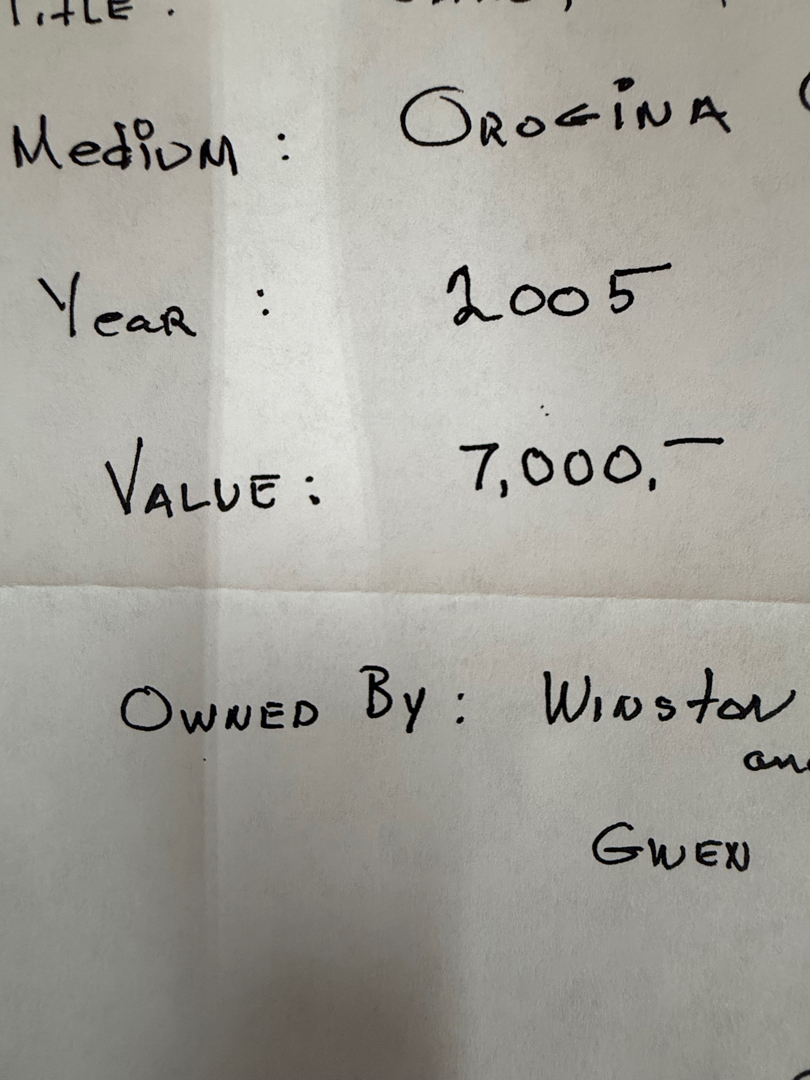 TITLE :
Medium : OROGINA
Year : 2005
VALUE : 7,000.—
OWNED By : Winston
and
GWEN